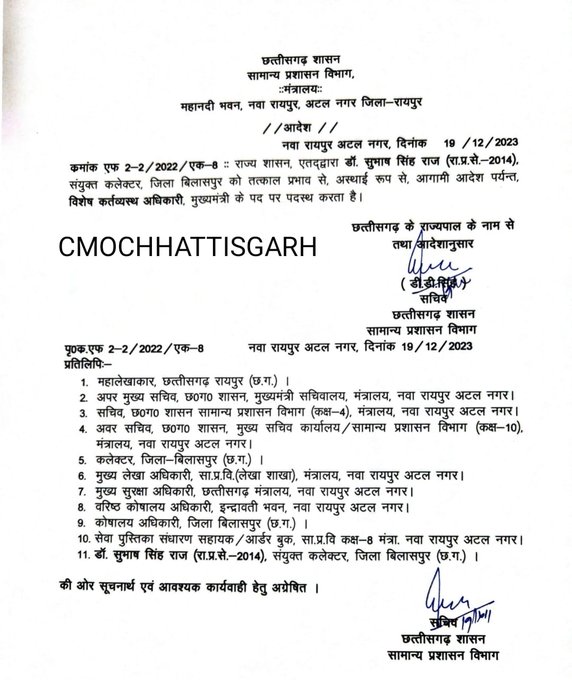 छत्तीसगढ़ शासन
सामान्य प्रशासन विभाग,
::मंत्रालय::
महानदी भवन, नवा रायपुर, अटल नगर जिला–रायपुर
//आदेश //
नवा रायपुर अटल नगर, दिनांक 19 /12/2023
क्रमांक एफ 2–2/2022/एक–8 :: राज्य शासन, एतद्द्वारा डॉ. सुभाष सिंह राज (रा.प्र.से.–2014),
संयुक्त कलेक्टर, जिला बिलासपुर को तत्काल प्रभाव से, अस्थाई रूप से, आगामी आदेश पर्यन्त,
विशेष कर्तव्यस्थ अधिकारी, मुख्यमंत्री के पद पर पदस्थ करता है।
छत्तीसगढ़ के राज्यपाल के नाम से
तथा आदेशानुसार
CMOCHHATTISGARH
( डी.डी.सिंह )
सचिव
छत्तीसगढ़ शासन
सामान्य प्रशासन विभाग
पृ0क.एफ 2–2/2022/एक–8 नवा रायपुर अटल नगर, दिनांक 19/12/2023
प्रतिलिपिः–
1. महालेखाकार, छत्तीसगढ़ रायपुर (छ.ग.) ।
2. अपर मुख्य सचिव, छ0ग0 शासन, मुख्यमंत्री सचिवालय, मंत्रालय, नवा रायपुर अटल नगर।
3. सचिव, छ0ग0 शासन सामान्य प्रशासन विभाग (कक्ष–4), मंत्रालय, नवा रायपुर अटल नगर।
4. अवर सचिव, छ0ग0 शासन, मुख्य सचिव कार्यालय/सामान्य प्रशासन विभाग (कक्ष–10),
मंत्रालय, नवा रायपुर अटल नगर।
5. कलेक्टर, जिला–बिलासपुर (छ.ग.) ।
6. मुख्य लेखा अधिकारी, सा.प्र.वि.(लेखा शाखा), मंत्रालय, नवा रायपुर अटल नगर।
7. मुख्य सुरक्षा अधिकारी, छत्तीसगढ़ मंत्रालय, नवा रायपुर अटल नगर।
8. वरिष्ठ कोषालय अधिकारी, इन्द्रावती भवन, नवा रायपुर अटल नगर।
9. कोषालय अधिकारी, जिला बिलासपुर (छ.ग.) ।
10. सेवा पुस्तिका संधारण सहायक/आर्डर बुक, सा.प्र.वि कक्ष–8 मंत्रा. नवा रायपुर अटल नगर।
11. डॉ. सुभाष सिंह राज (रा.प्र.से.–2014), संयुक्त कलेक्टर, जिला बिलासपुर (छ.ग.) ।
की ओर सूचनार्थ एवं आवश्यक कार्यवाही हेतु अग्रेषित ।
सचिव
छत्तीसगढ़ शासन
सामान्य प्रशासन विभाग